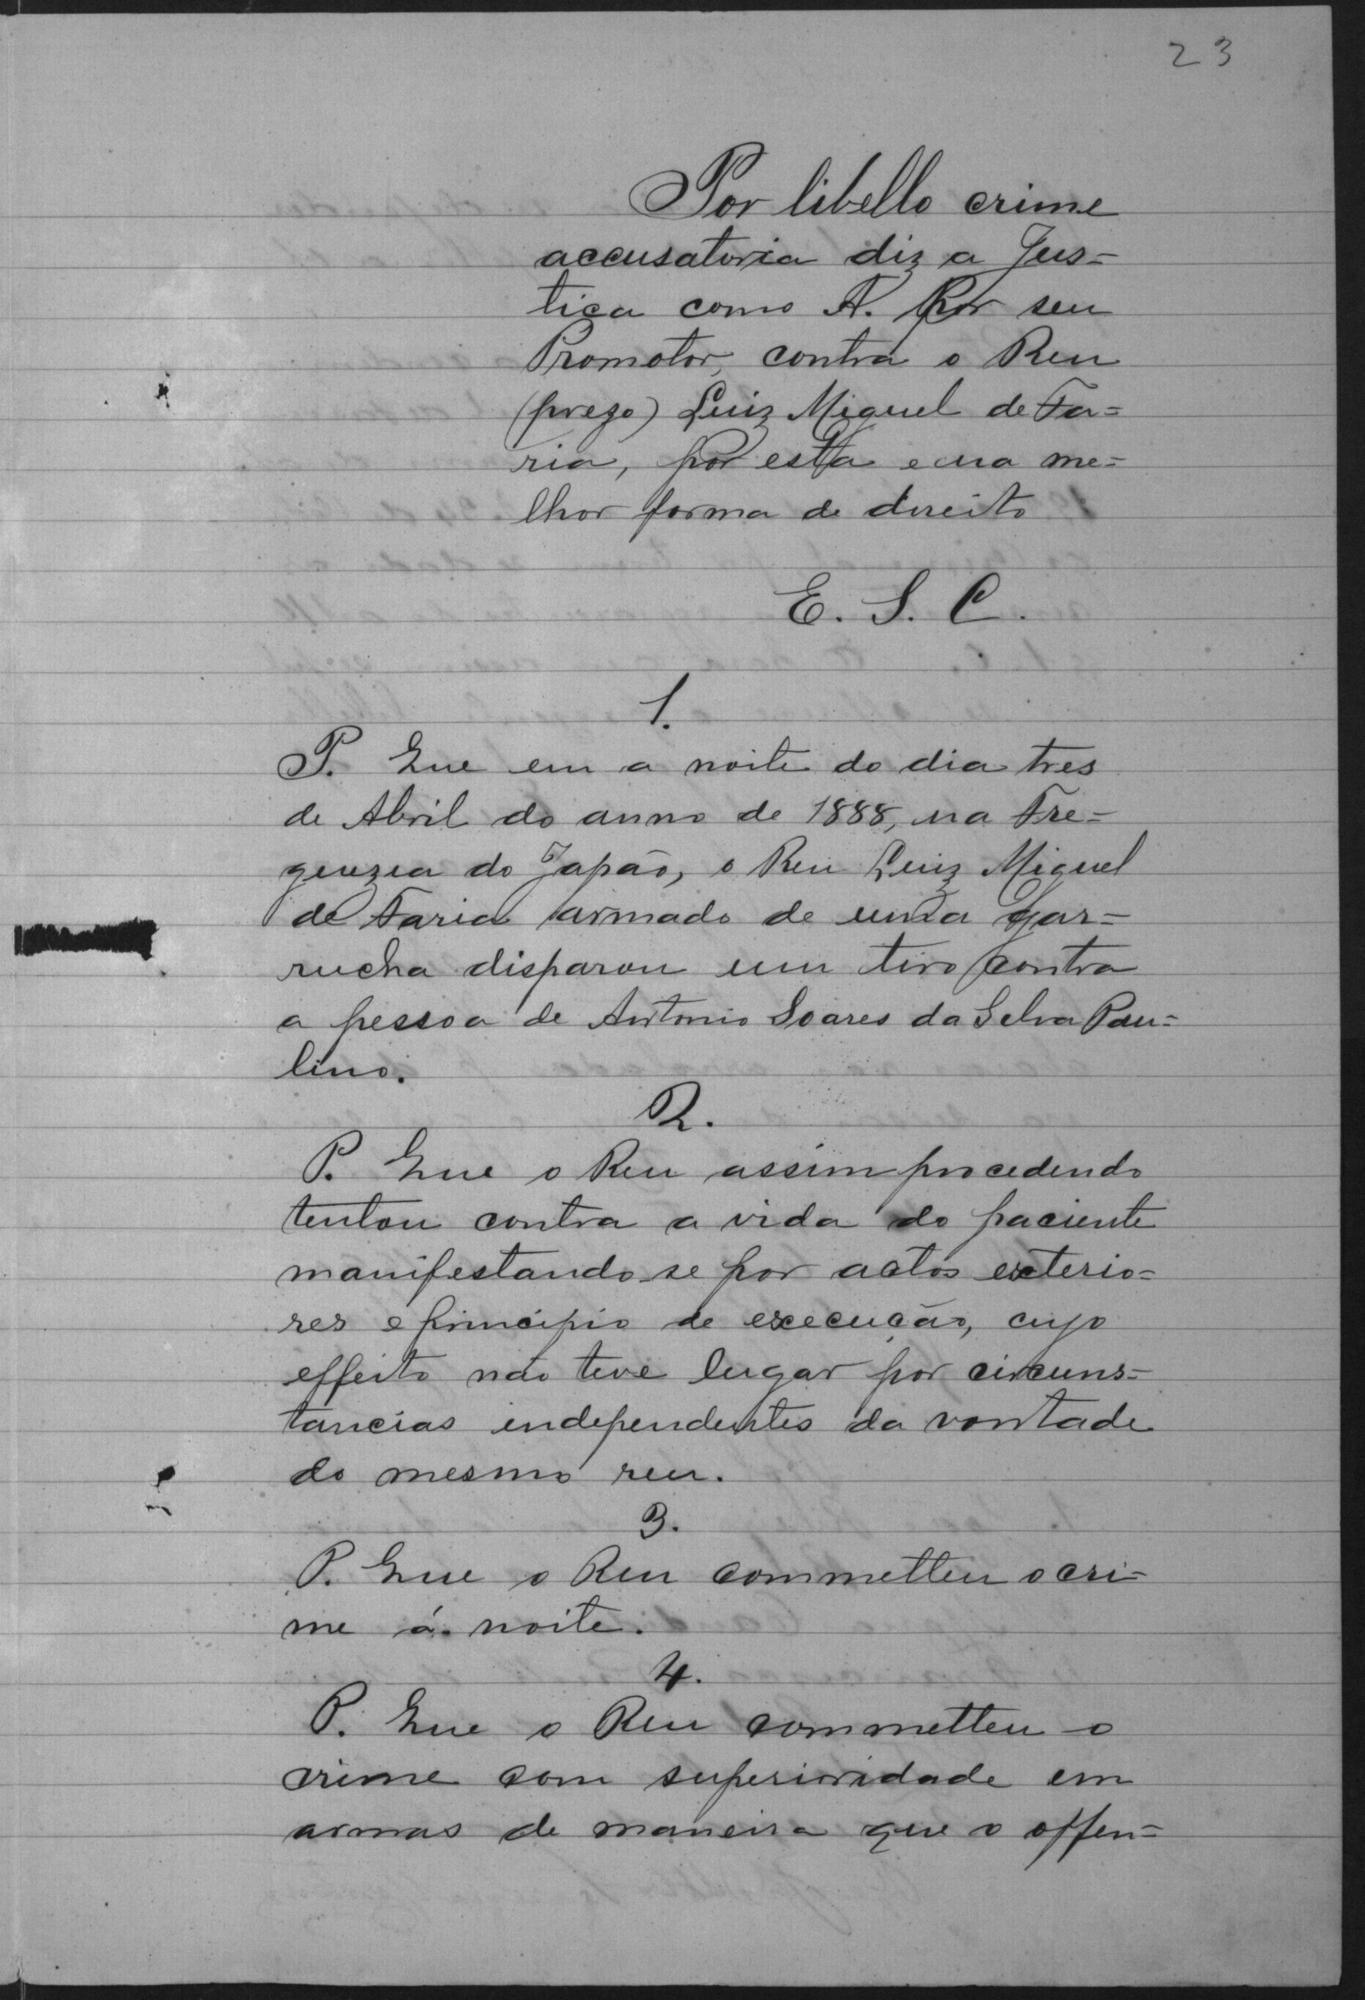 23
Por libello crime
accusatoria diz a Jus=
tica como A. Por seu
Promotor, contra o Reu
(prezo) Luiz Miguel de Fa=
ria, por esta e na me=
lhor forma de direito
E. S. C.
1.
P. Que em a noite do dia tres
de Abril do anno de 1888, na Fre=
guezia do Japão, o Reu Luiz Miguel
de Faria armado de uma gar=
rucha disparou um tiro contra
a pessoa de Antonio Soares da Selva Pau=
lino.
2.
P. Que o Reu assim procedendo
tentou contra a vida do paciente
manifestando-se por actos exterio=
res e principio de execução, cujo
effeito não teve lugar por circuns=
tancias independentes da vontade
do mesmo reu.
3.
P. Que o Reu commetteu o cri=
me á noite.
4.
P. Que o Reu commetteu o
crime com superioridade em
armas de maneira que o offen=